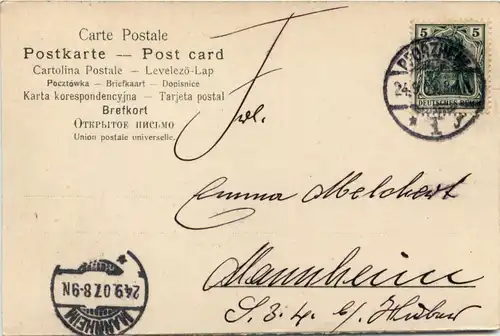 Carte Postale
Postkarte — Post card
Cartolina Postale – Levelező-Lap
Pocztówka – Briefkaart – Dopisnice
Karta korespondencyjna – Tarjeta postal
Brefkort
Открытое письмо
Union postale universelle.
5 5
PFORZHEIM
24.9
DEUTSCHES REICH
* 1
Frl.
Emma Melchert
Mannheim
S. 3. 4. b/ Huber
MANNHEIM
24.9.07.8-9N